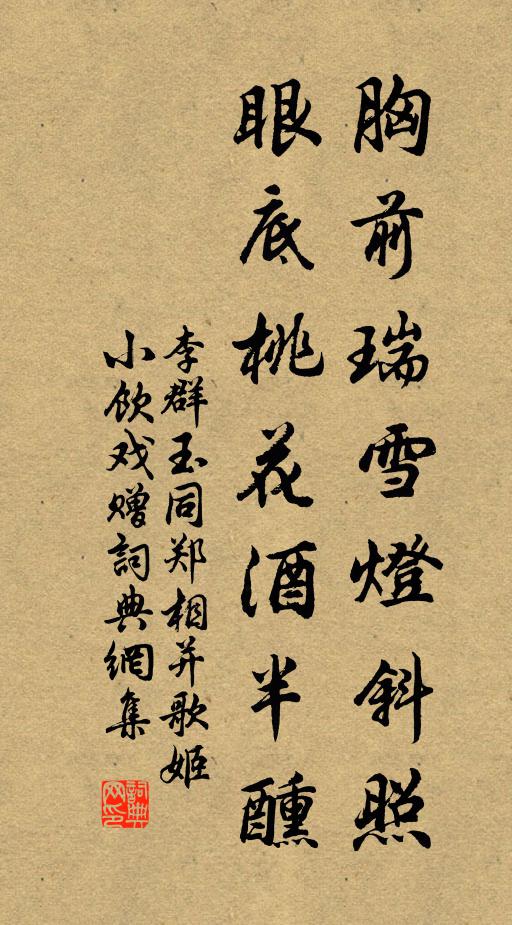 胸前瑞雪燈斜照
眼底桃花酒半醺
李群玉同郑相并歌姬
小飲戏赠詞典網集
詞典网印